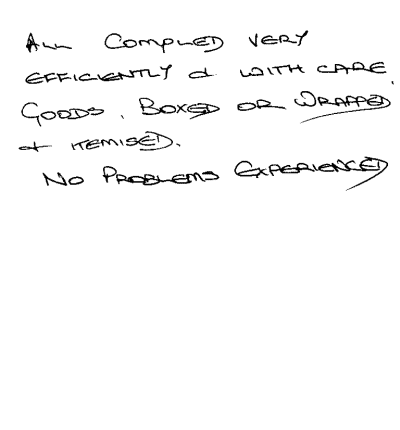 ALL COMPLED VERY
EFFICIENTLY & WITH CARE.
GOODS, BOXED OR WRAPPED
& ITEMISED.
NO PROBLEMS EXPERIENCED